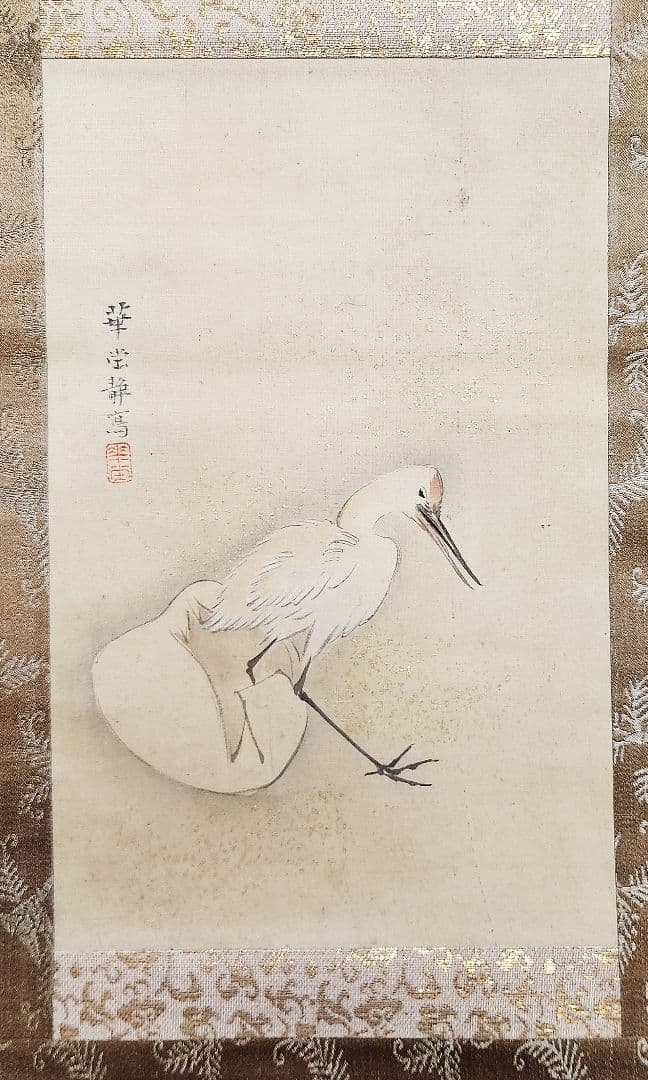 華堂静寫